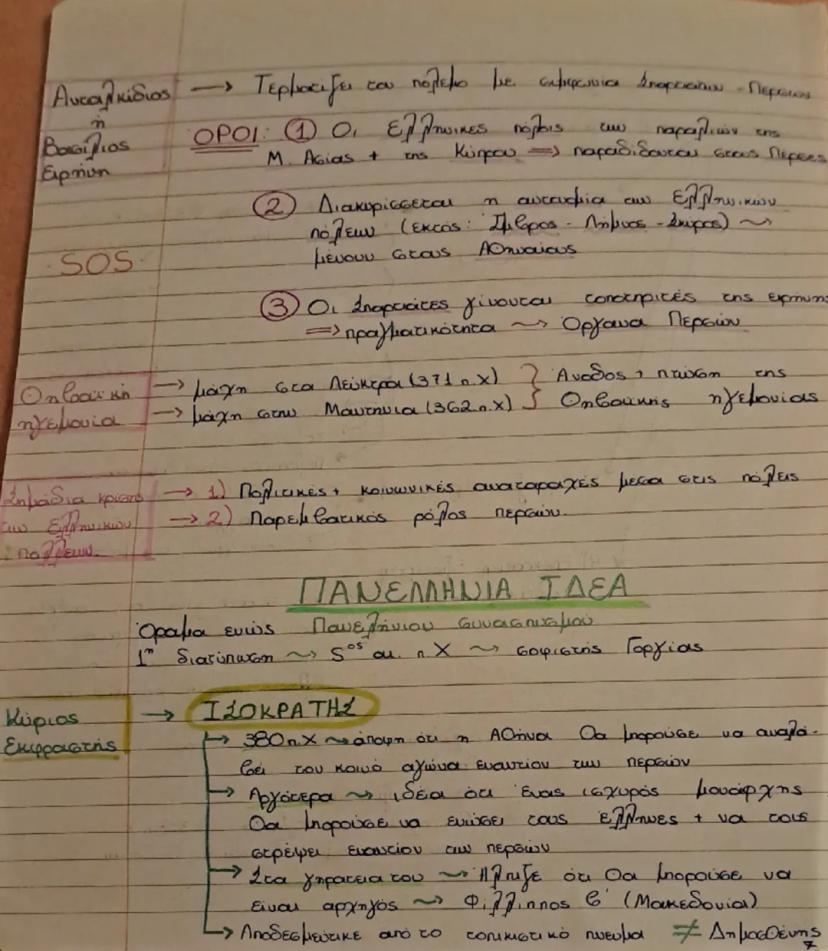 Ανταλκίδιος → Τερματίζει τον πόλεμο με συμφωνία Σπαρτιατών - Περσών
ή
Βασίλιος
Ειρήνη
ΟΡΟΙ: ① Οι Ελληνικές πόλεις των παραλιών της
Μ. Ασίας + της Κύπρου ⇒ παραδίδονται στους Πέρσες
② Διακυρίσσεται η αυτονομία των Ελληνικών
πόλεων (εκτός: Ίμβρος - Λήμνος - Σκύρος) ⤳
μένουν στους Αθηναίους
SOS
③ Οι Σπαρτιάτες γίνονται τοποτηρητές της ειρήνης
⇒ πραγματικότητα ⤳ Όργανα Περσών
Θηβαϊκή
ηγεμονία
→ μάχη στα Λεύκτρα (371 π.Χ) } Άνοδος + πτώση της
→ μάχη στην Μαντίνεια (362 π.Χ) } Θηβαϊκής ηγεμονίας
Σημάδια κρίσης
των Ελληνικών
πόλεων.
→ 1) Πολιτικές + κοινωνικές αναταραχές μέσα στις πόλεις
→ 2) Παρεμβατικός ρόλος περσών.
ΠΑΝΕΛΛΗΝΙΑ ΙΔΕΑ
Όραμα ενώς Πανελήνιου συνασπισμού
1η διατύπωση ⤳ 5ος αι. π.Χ ⤳ σοφιστής Γοργίας
Κύριος
Εκφραστής
→ ΙΣΟΚΡΑΤΗΣ
→ 380 π.Χ ⤳ άποψη ότι η Αθήνα θα μπορούσε να αναλά-
βει τον κοινό αγώνα εναντίον των περσών
→ Αργότερα ⤳ ιδέα ότι ένας ισχυρός μονάρχης
θα μπορούσε να ενώσει τους Έλληνες + να τους
στρέψει εναντίον των περσών
→ Στα γηρατειά του ⤳ Ήλπιζε ότι θα μπορούσε να
είναι αρχηγός ⤳ Φίλλιπος β' (Μακεδονία)
→ Αποδεσμεύτικε από το τοπικιστικό πνεύμα ≠ Δημοσθένης